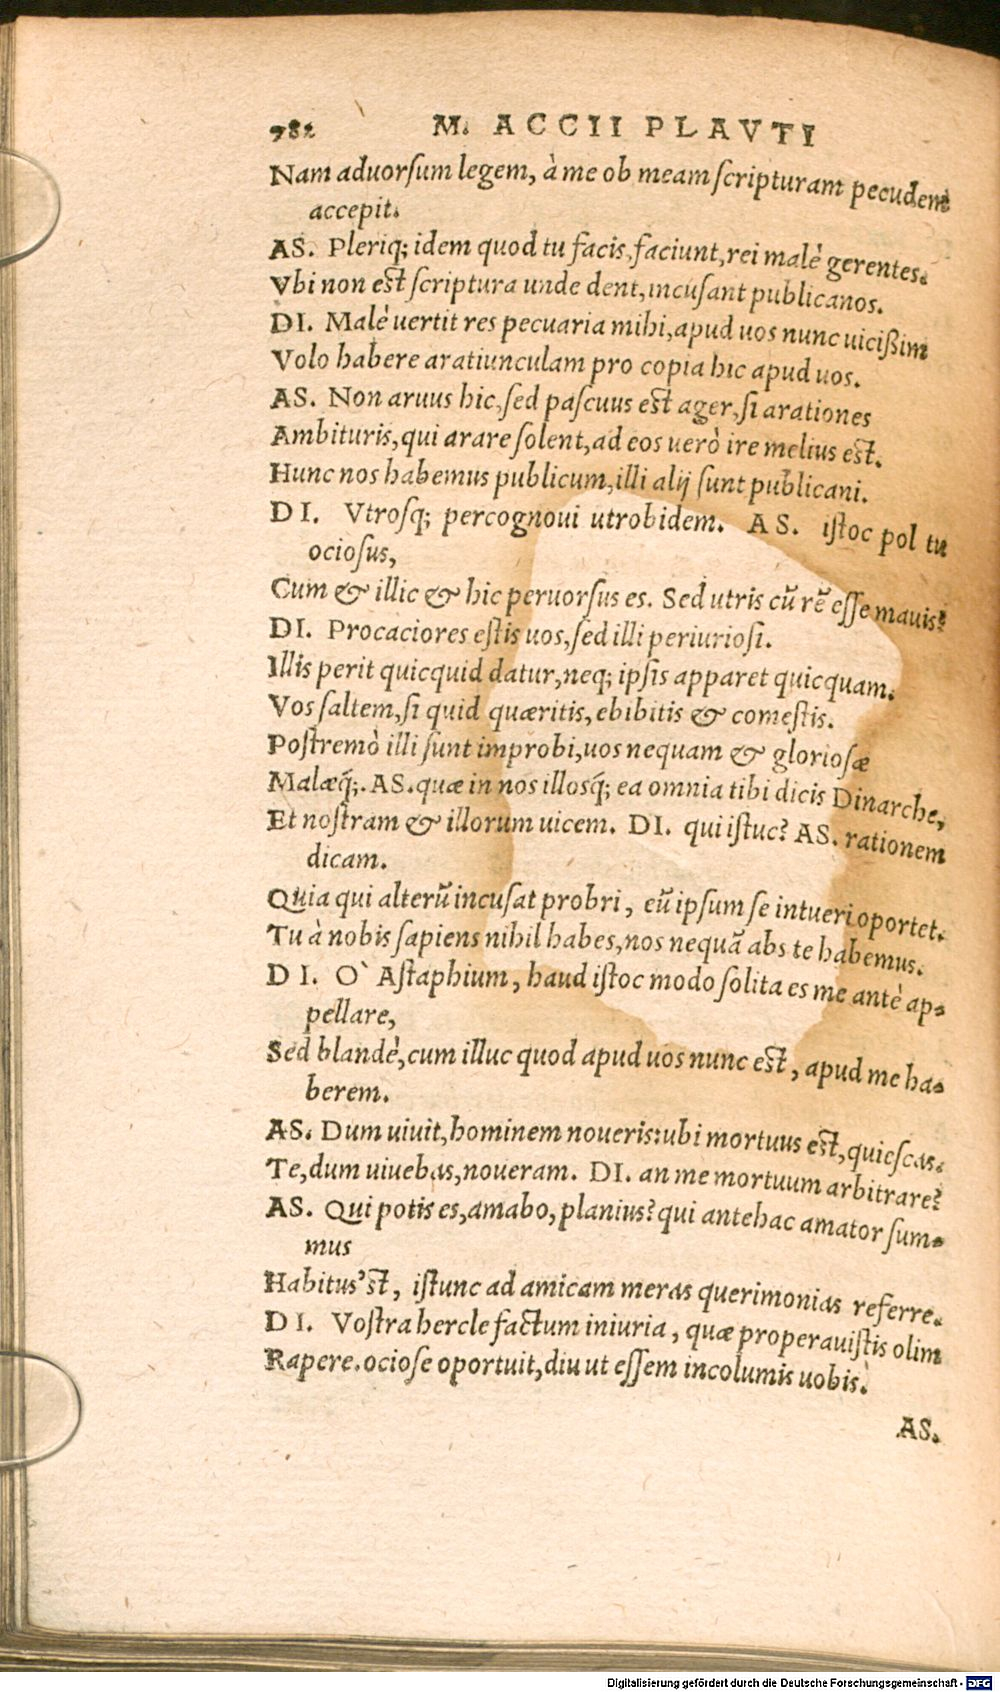 782 M. ACCII PLAVTI
Nam aduorsum legem, à me ob meam scripturam pecudem
accepit.
AS. Pleriq; idem quod tu facis, faciunt, rei malè gerentes.
Vbi non est scriptura unde dent, incusant publicanos.
DI. Malè uertit res pecuaria mihi, apud uos nunc uicißim
Volo habere aratiunculam pro copia hic apud uos.
AS. Non aruus hic, sed pascuus est ager, si arationes
Ambituris, qui arare solent, ad eos uerò ire melius est.
Hunc nos habemus publicum, illi alij sunt publicani.
DI. Vtrosq; percognoui utrobidem. AS. istoc pol tu
ociosus,
Cum & illic & hic peruorsus es. Sed utris cū rē esse mauis?
DI. Procaciores estis uos, sed illi periuriosi.
Illis perit quicquid datur, neq; ipsis apparet quicquam.
Vos saltem, si quid quæritis, ebibitis & comestis.
Postremò illi sunt improbi, uos nequam & gloriosæ
Malæq́;. AS. quæ in nos illosq́; ea omnia tibi dicis Dinarche,
Et nostram & illorum uicem. DI. qui istuc? AS. rationem
dicam.
Quia qui alterū incusat probri, eū ipsum se intueri oportet.
Tu à nobis sapiens nihil habes, nos nequā abs te habemus.
DI. O` Astaphium, haud istoc modo solita es me antè ap-
pellare,
Sed blandè, cum illuc quod apud uos nunc est, apud me ha-
berem.
AS. Dum uiuit, hominem noueris: ubi mortuus est, quiescas.
Te, dum uiuebas, noueram. DI. an me mortuum arbitrare?
AS. Qui potis es, amabo, planius? qui antehac amator sum-
mus
Habitus'st, istunc ad amicam meras querimonias referre.
DI. Vostra hercle factum iniuria, quæ properauistis olim
Rapere. ociose oportuit, diu ut essem incolumis uobis.
AS.
Digitalisierung gefördert durch die Deutsche Forschungsgemeinschaft - DFG